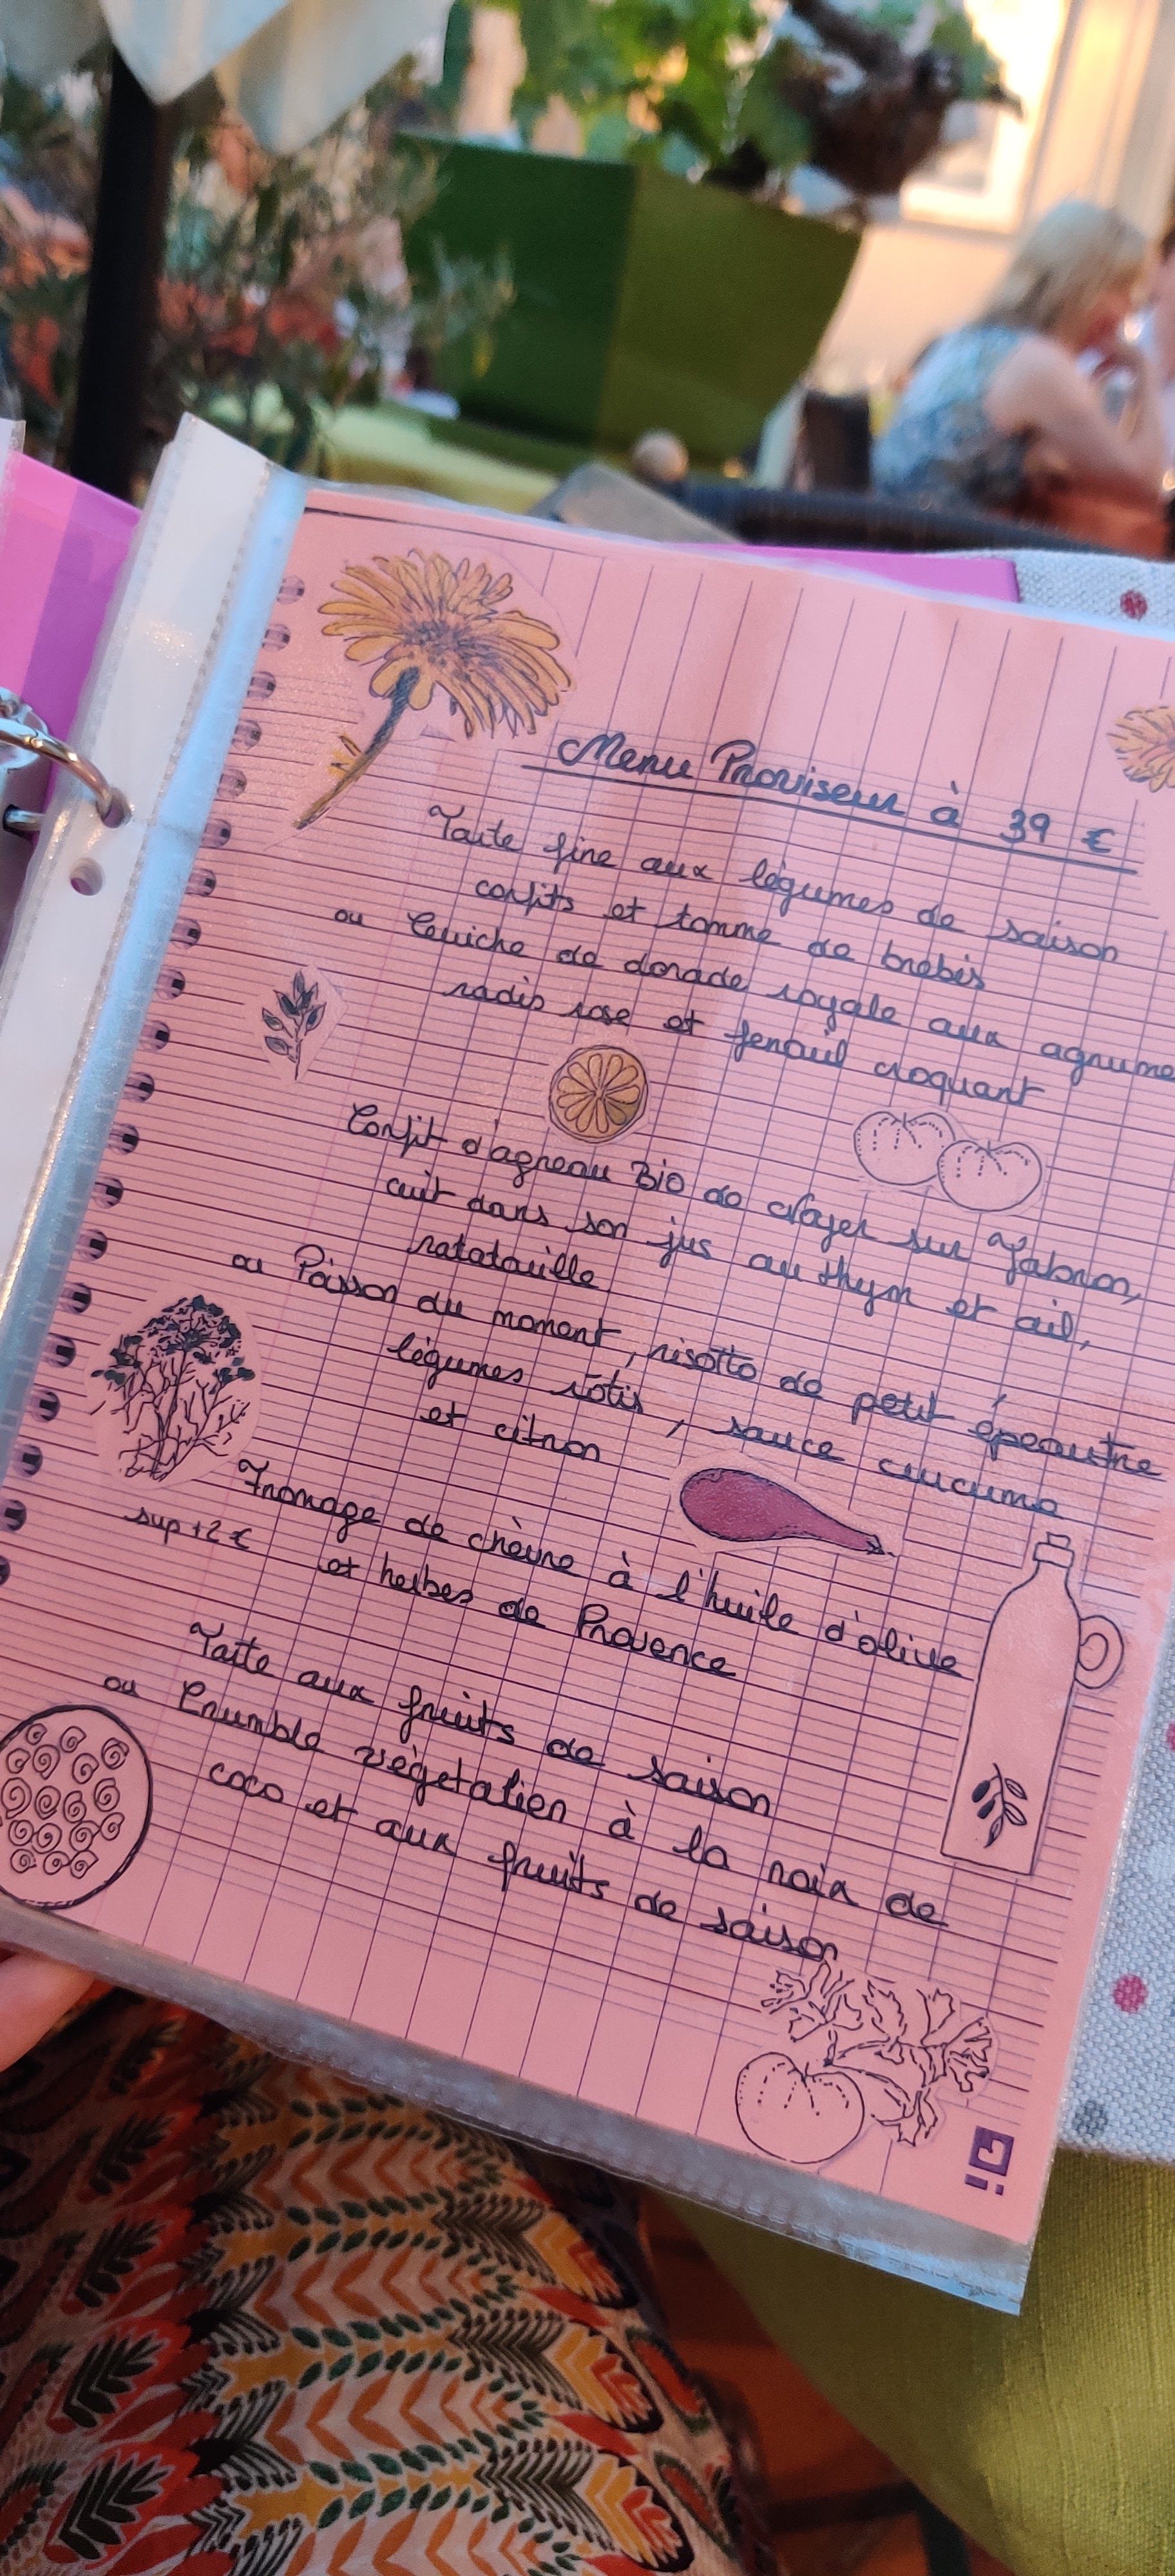 Menu Proviseur à 39 €
Tarte fine aux légumes de saison
confits et tomme de brebis
ou Ceviche de dorade royale aux agrume
radis rose et fenouil croquant
Confit d'agneau Bio de Noyer sur Jabron,
cuit dans son jus au thym et ail,
ratatouille
ou Poisson du moment, risotto de petit épeautre
légumes rôtis, sauce curcuma
et citron
Fromage de chèvre à l'huile d'olive
sup +2 € et herbes de Provence
Tarte aux fruits de saison
ou Crumble végétalien à la noix de
coco et aux fruits de saison